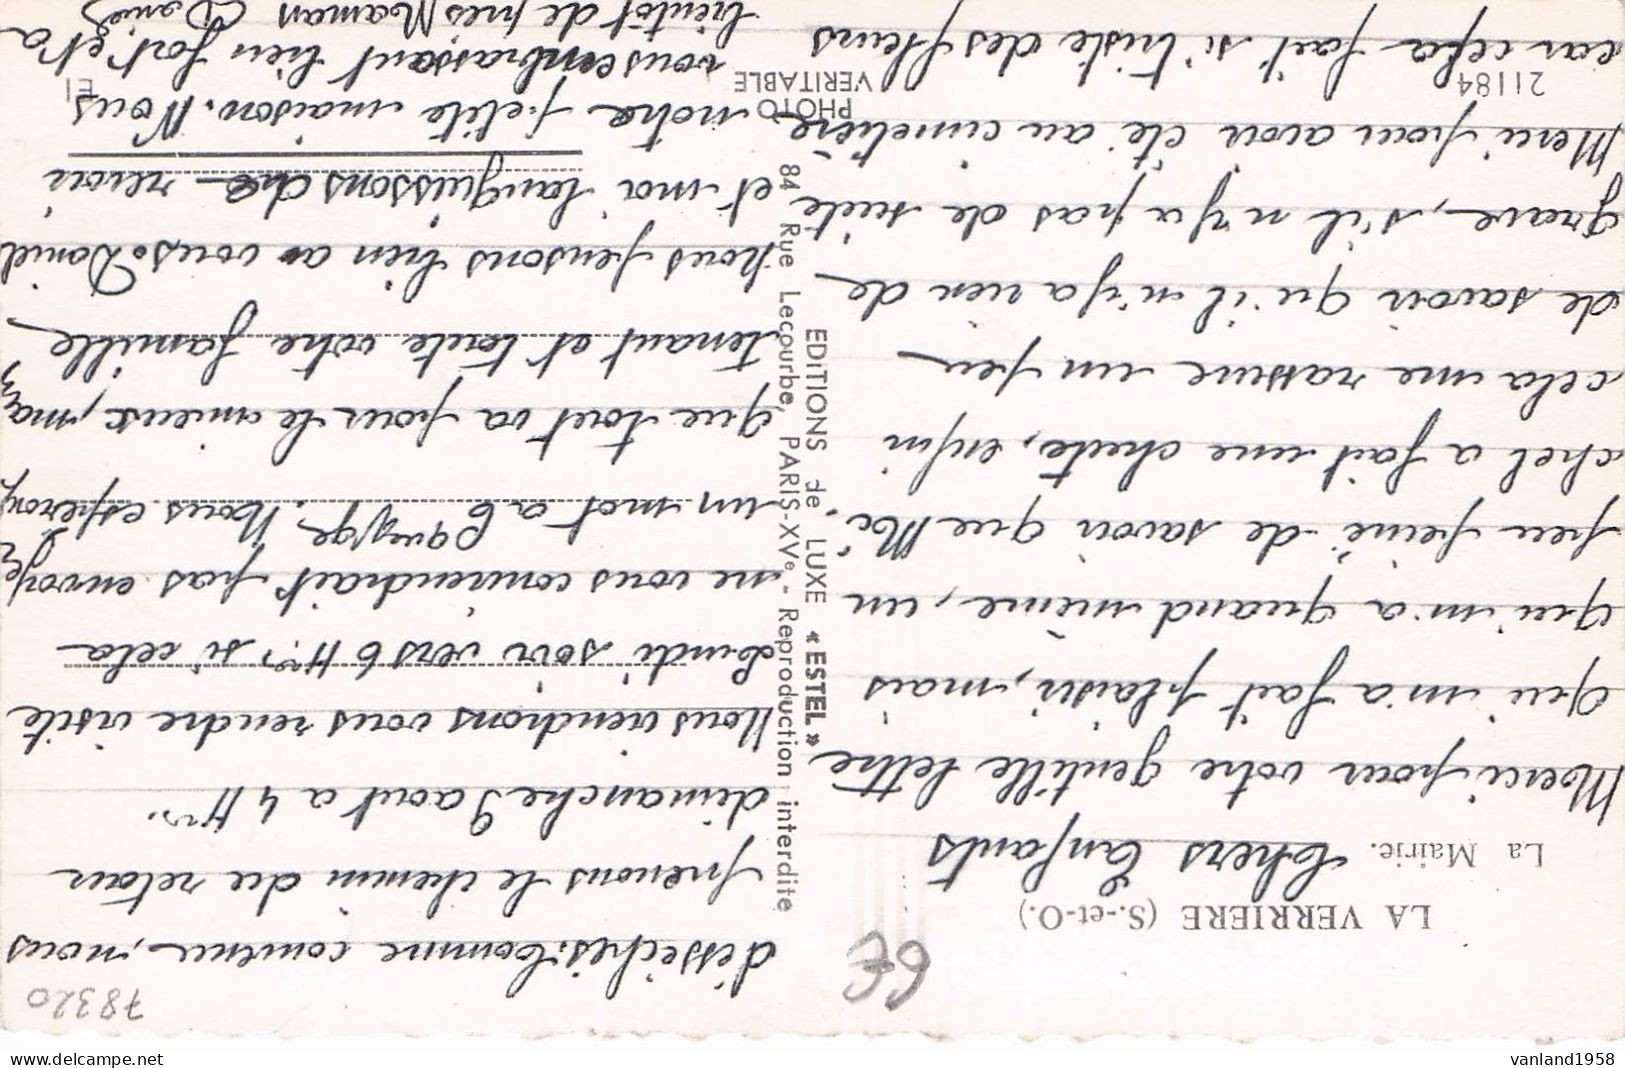 78320
6€
LA VERRIERE (S.-et-O.)
La Mairie.
Chers Enfants
Merci pour votre gentille lettre
qui m'a fait plaisir, mais
qui m'a quand même, un
peu peiné de savoir que Mi-
chel a fait une chute, enfin
cela me rassure un peu
de savoir qu'il n'y a rien de
grave, s'il n'y a pas de suite
Merci pour avoir été au cimetière
car cela fait si triste des fleurs
desséchés. Comme convenu, nous
prenons le chemin du retour
dimanche 9 aout a 4 Hrs.
Nous viendrons vous rendre visite
Lundi soir vers 6 Hrs si cela
ne vous conviendrait pas envoyez
un mot a 6 Nous esperons
que tout va pour le mieux, main
tenant et toute votre famille
nous pensons bien a vous. Daniel
et moi languissons de revoir
notre petite maison. Nous
vous embrassant bien fort et a
bientôt de près Maman
EDITIONS de LUXE « ESTEL »
84, Rue Lecourbe, PARIS-XVe - Reproduction interdite
PHOTO
VERITABLE
21184
vanland1958